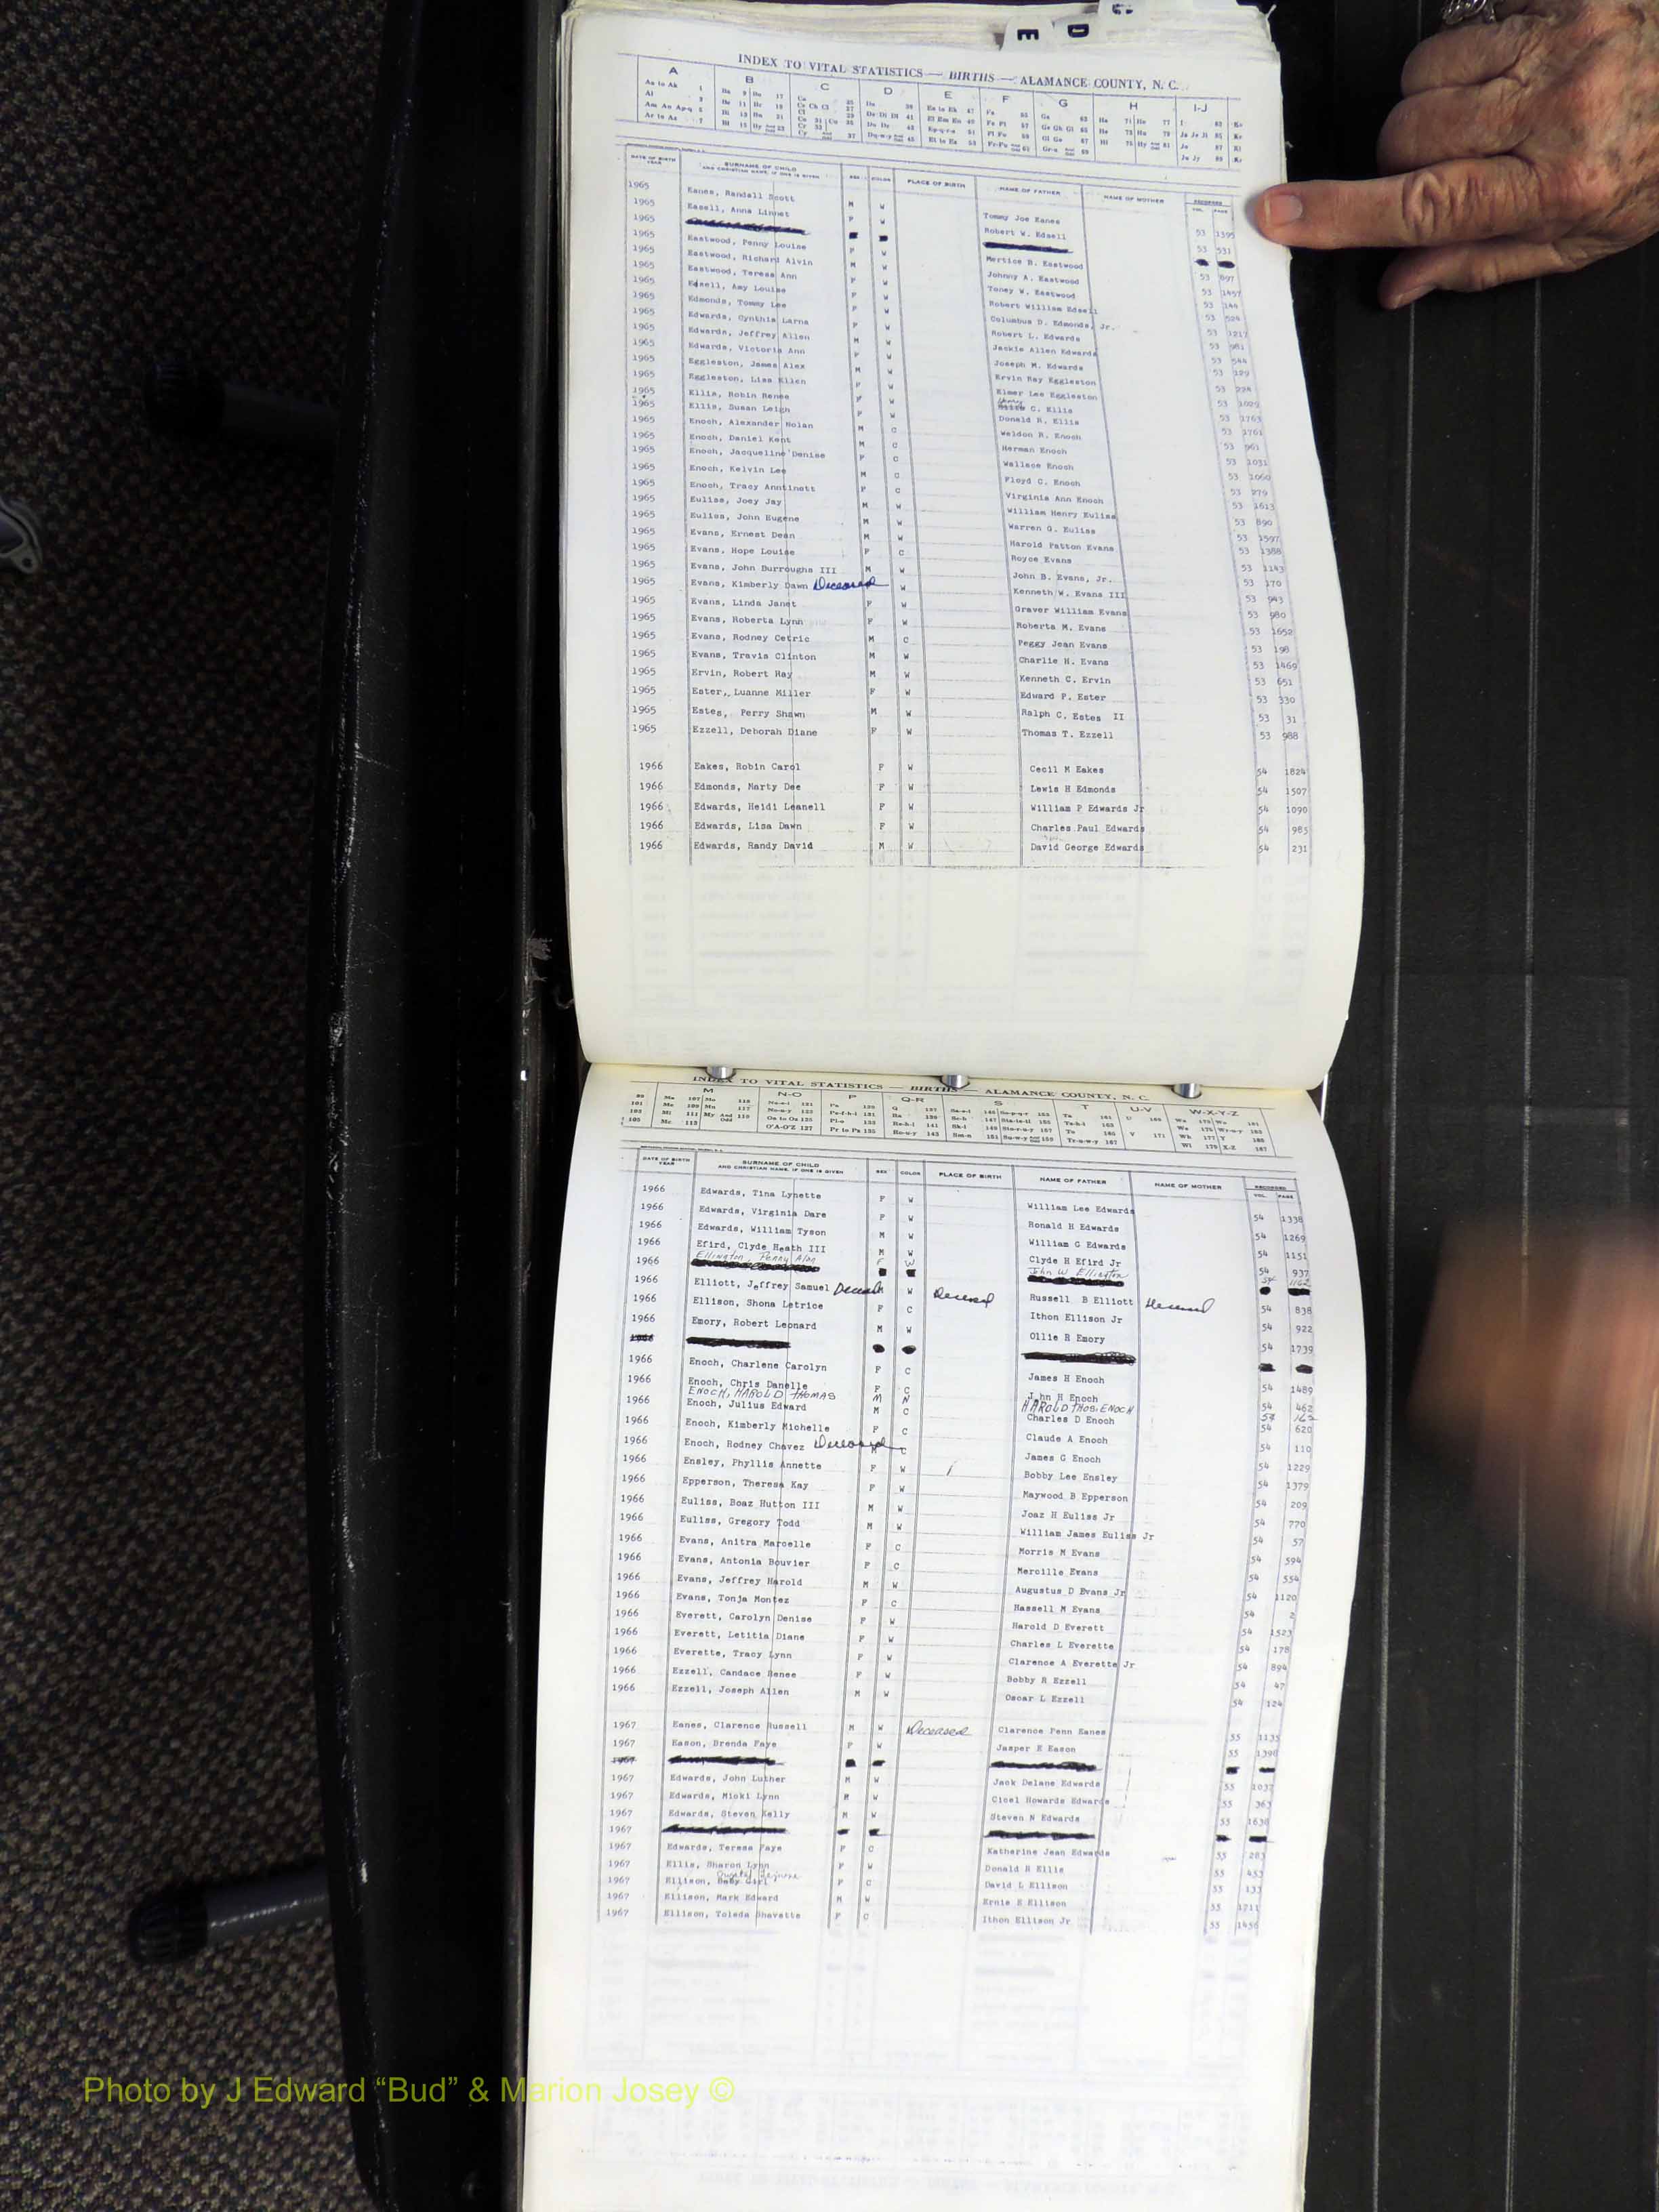 E D
INDEX TO VITAL STATISTICS — BIRTHS — ALAMANCE COUNTY, N. C.
A B C D E F G H I-J
DATE OF BIRTH YEAR SURNAME OF CHILD AND CHRISTIAN NAME, IF ONE IS GIVEN SEX COLOR PLACE OF BIRTH NAME OF FATHER NAME OF MOTHER RECORDED VOL. PAGE
1965 Eanes, Randall Scott M W Tommy Joe Eanes 53 1395
1965 Easell, Anna Linnet F W Robert W. Edsell 53 531
1965
1965 Eastwood, Penny Louise F W Mertice R. Eastwood 53 897
1965 Eastwood, Richard Alvin M W Johnny A. Eastwood 53 1497
1965 Eastwood, Teresa Ann F W Toney W. Eastwood 53
1965 Edsell, Amy Louise F W Robert William Edsell 53
1965 Edmonds, Tommy Lee W Columbus D. Edmonds, Jr. 53 1217
1965 Edwards, Cynthia Larne F W Robert L. Edwards 53 981
1965 Edwards, Jeffrey Allen M W Jackie Allen Edwards 53 544
1965 Edwards, Victoria Ann F W Joseph M. Edwards 53
1965 Eggleston, James Alex M W Ervin Ray Eggleston 53
1965 Eggleston, Lisa Ellen F W Elmer Lee Eggleston 53 1029
1965 Ellis, Robin Renee F W Henry C. Ellis 53 1763
1965 Ellis, Susan Leigh F W Donald R. Ellis 53 1761
1965 Enoch, Alexander Nolan M C Weldon R. Enoch 53 961
1965 Enoch, Daniel Kent M C Herman Enoch 53 1031
1965 Enoch, Jacqueline Denise F C Wallace Enoch 53 1060
1965 Enoch, Kelvin Lee M C Floyd C. Enoch 53 279
1965 Enoch, Tracy Anntinett F C Virginia Ann Enoch 53 1613
1965 Euliss, Joey Jay M W William Henry Euliss 53 890
1965 Euliss, John Eugene M W Warren G. Euliss 53 1597
1965 Evans, Ernest Dean M W Harold Patton Evans 53 1388
1965 Evans, Hope Louise F C Royce Evans 53 1143
1965 Evans, John Burroughs III M W John B. Evans, Jr. 53 170
1965 Evans, Kimberly Dawn Deceased W Kenneth W. Evans III 53 943
1965 Evans, Linda Janet F W Graver William Evans 53 980
1965 Evans, Roberta Lynn F W Roberta M. Evans 53 1652
1965 Evans, Rodney Cetric M C Peggy Jean Evans 53 198
1965 Evans, Travis Clinton M W Charlie H. Evans 53 1469
1965 Ervin, Robert Ray M W Kenneth C. Ervin 53 651
1965 Ester, Luanne Miller F W Edward P. Ester 53 330
1965 Estes, Perry Shawn M W Ralph C. Estes II 53 31
1965 Ezzell, Deborah Diane F W Thomas T. Ezzell 53 988
1966 Eakes, Robin Carol F W Cecil M Eakes 54 1824
1966 Edmonds, Marty Dee F W Lewis H Edmonds 54 1507
1966 Edwards, Heidi Leanell F W William P Edwards Jr 54 1090
1966 Edwards, Lisa Dawn F W Charles Paul Edwards 54 985
1966 Edwards, Randy David M W David George Edwards 54 231
INDEX TO VITAL STATISTICS — BIRTHS — ALAMANCE COUNTY, N. C.
M N-O P Q-R S T U-V W-X-Y-Z
DATE OF BIRTH YEAR SURNAME OF CHILD AND CHRISTIAN NAME, IF ONE IS GIVEN SEX COLOR PLACE OF BIRTH NAME OF FATHER NAME OF MOTHER RECORDED VOL. PAGE
1966 Edwards, Tina Lynette F W William Lee Edwards 54 1338
1966 Edwards, Virginia Dare F W Ronald H Edwards 54 1269
1966 Edwards, William Tyson M W William G Edwards 54 1151
1966 Efird, Clyde Heath III M W Clyde H Efird Jr 54 937
1966 Ellington Penny Alan F W John W Ellington 54 1162
1966 Elliott, Jeffrey Samuel Deceased M W Deceased Russell B Elliott Deceased 54 838
1966 Ellison, Shona Letrice F C Ithon Ellison Jr 54 922
1966 Emory, Robert Leonard M W Ollie R Emory 54 1739
1966 Enoch, Charlene Carolyn F C James H Enoch 54 1489
1966 Enoch, Chris Danelle F C John H Enoch 54 462
ENOCH, HAROLD THOMAS M N HAROLD THOS. ENOCH 54
1966 Enoch, Julius Edward M C Charles D Enoch 54 620
1966 Enoch, Kimberly Michelle F C Claude A Enoch 54 110
1966 Enoch, Rodney Chavez Deceased M C James G Enoch 54 1229
1966 Ensley, Phyllis Annette F W Bobby Lee Ensley 54 1379
1966 Epperson, Theresa Kay F W Maywood B Epperson 54 209
1966 Euliss, Boaz Hutton III M W Joaz H Euliss Jr 54 770
1966 Euliss, Gregory Todd M W William James Euliss Jr 54 57
1966 Evans, Anitra Marcelle F C Morris M Evans 54 594
1966 Evans, Antonia Bouvier F C Mercille Evans 54 554
1966 Evans, Jeffrey Harold M W Augustus D Evans Jr 54 1120
1966 Evans, Tonja Montez F C Hassell M Evans 54 2
1966 Everett, Carolyn Denise F W Harold D Everett 54 1523
1966 Everett, Letitia Diane F W Charles L Everette 54 178
1966 Everette, Tracy Lynn F W Clarence A Everette Jr 54 894
1966 Ezzell, Candace Renee F W Bobby R Ezzell 54 47
1966 Ezzell, Joseph Allen M W Oscar L Ezzell 54 124
1967 Eanes, Clarence Russell M W Deceased Clarence Penn Eanes 55 1135
1967 Eason, Brenda Faye F W Jasper E Eason 55 1390
1967
1967 Edwards, John Luther M W Jack Delane Edwards 55 1037
1967 Edwards, Micki Lynn W Cicel Howards Edwards 55 363
1967 Edwards, Steven Kelly M W Steven N Edwards 55 1630
1967
1967 Edwards, Teresa Faye F C Katherine Jean Edwards 55 283
1967 Ellis, Sharon Lynn F W Donald R Ellis 55 453
1967 Ellison, Baby Girl F C David L Ellison 55 133
1967 Ellison, Mark Edward M W Ernie E Ellison 55 1711
1967 Ellison, Toleda Shavette F C Ithon Ellison Jr 55 1450
Photo by J Edward “Bud” & Marion Josey ©